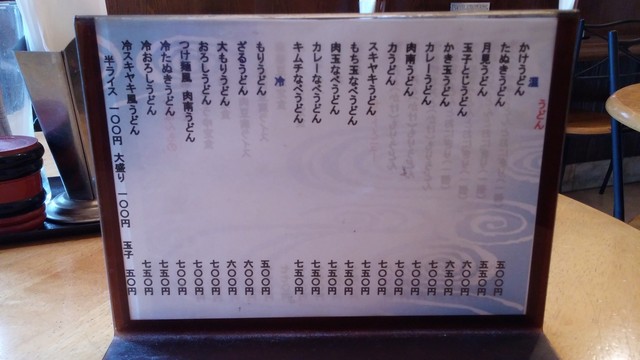 うどん
温
かけうどん 五〇〇円
たぬきうどん 五五〇円
月見うどん 六〇〇円
玉子とじうどん 六五〇円
かき玉うどん 七〇〇円
カレーうどん 七〇〇円
肉南うどん 七〇〇円
力うどん 七〇〇円
スキヤキうどん 七五〇円
もち玉なべうどん 七五〇円
肉玉なべうどん 七五〇円
カレーなべうどん 七五〇円
キムチなべうどん 七五〇円
冷
もりうどん 五〇〇円
ざるうどん 六〇〇円
大もりうどん 六〇〇円
おろしうどん 七〇〇円
つけ麺風 肉南うどん 七〇〇円
冷たぬきうどん 七〇〇円
冷おろしうどん 七五〇円
冷スキヤキ風うどん 七五〇円
半ライス 一〇〇円 大盛り 一〇〇円 玉子 五〇円